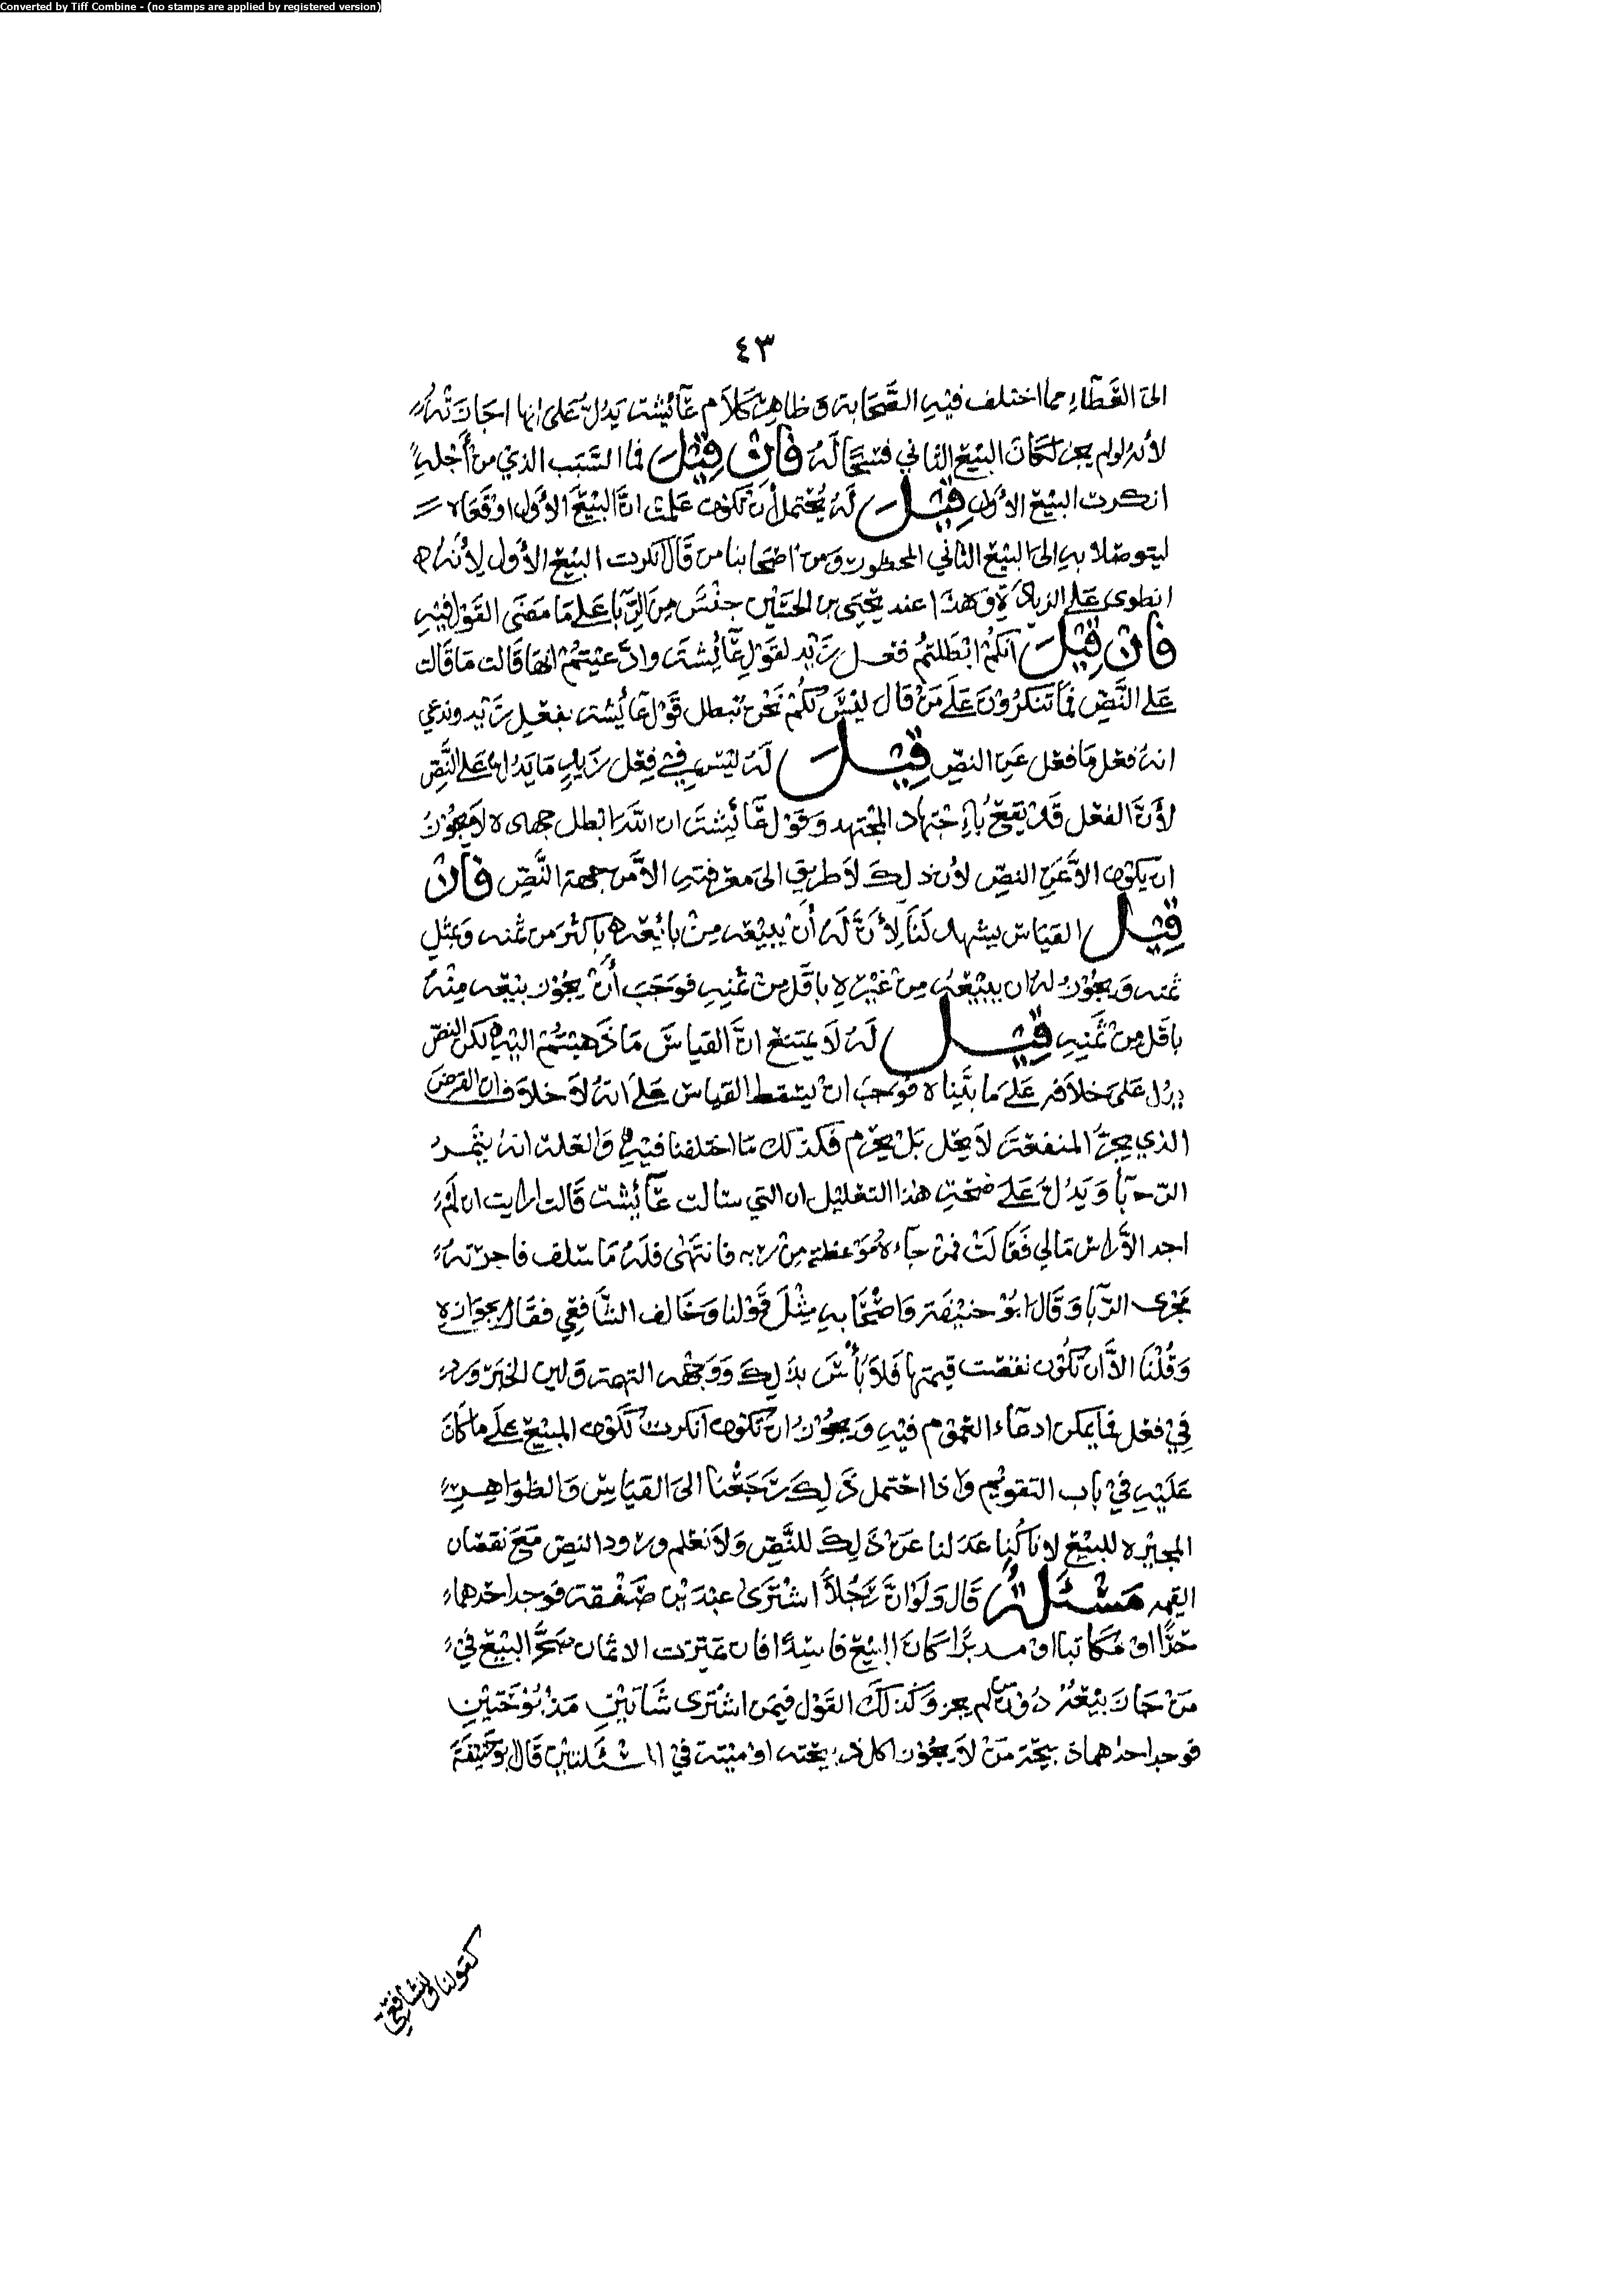 Converted by Tiff Combine - (no stamps are applied by registered version)
٤٣
الى العَطَاءِ مما اختلف فيه الصَّحَابة وَظاهِر كلاَم عَائِشة يَدُلُّ عَلى انها اجازته
لأنه لولم يجز لَكَانَ البَيْع الثاني فسخًا لَهُ فَاِنْ قِيْلَ فما السَّبَب الذي من أَجْلهِ
انكرت البيع الأوَّل قِيْلَ لَهُ يُحْتمل أن تكون عَلمت انَّ البَيْعَ الأوَّل اوْقعَاه
ليتوصّلا به الى البيْع الثاني المحظور وَمن اصحابنا من قَالَ انكرت البَيْع الأول لأنه
انطوى عَلى الزيادَة وَهَذا عند يحيى بن الحسَيْن جنْسٌ مِنَ الرِّبَا عَلى مَا مَضَى القَوْل فيْهِ
فَاِنْ قِيْلَ انكمْ ابْطَلتمْ فعْل زَيْد لقَوْلِ عَائِشَة وادَّعَيْتُمْ انهَا قَالت مَا قَالت
عَلى النَّصِّ فمَا تَنكرُوْنَ عَلَى مَنْ قَال ليْسَ لكُمْ نَحْنُ نبطل قَوْل عَائِشة بفعْلِ زَيْد وندعي
انهُ فعَل مَا فعَل عَنِ النصِّ قِيْلَ لَهُ ليْسَ فِي فعْل زَيْدٍ مَا يَدُلُّ عَلى النَّصِّ
لأنَّ الفعْل قَدْ يَقَعُ بِاجْتِهَاد المجْتهد وَقوْل عَائِشَة ان اللّه ابْطل جهاده لاَ يجُوْزُ
ان يكوْن الاَّ عَنِ النصِّ لأن ذلِكَ لاَ طريق الى مَعْرفته الاَّ من جهة النَّصِّ فَاِنْ
قِيْلَ القيَاسُ يشهد لَنَا لأَنَّ لَهُ أَنْ يبيْعَه مِنْ بائِعه بِاكثر من ثمنه وَبمثْلِ
ثمنه وَيجُوْزُ لهُ ان يبيْعهُ مِنْ غيْرهِ باقَل مِنْ ثمنهِ فوَجَبَ أنْ يجُوْز بيْعه مِنْهُ
باقَل مِنْ ثَمنِهِ قِيْلَ لَهُ لاَ يمتنع انَّ القيَاسَ مَا ذَهبْتُمْ اليْه لكن النصّ
يدُل عَلى خلاَفه عَلَى مَا بَيَّناه فوَجبَ انْ يسْقط القيَاس عَلَى انهُ لاَ خلاَف ان القرضَ
الذي يجرّ المنفعَة لاَ يحل بَلْ يحْرم فكذلك مَا اختلفنا فيْهِ وَالعلة انهُ يثمر
الرّبا وَيَدُلُّ عَلَى صحّة هٰذا التعْليْل ان التي سَالت عَائِشة قَالت ارايت ان لَمْ
اجد الاَّ راس مَالي فَقَالَتْ فمنْ جَاءهُ مَوْعظة مِنْ ربه فانتَهى فلَهُ مَا سَلف فاجرته
مجْرى الرِّبا وَقَال ابُوْ حَنيْفَة وَاصْحَابه مِثْلَ قَوْلنا وَخَالف الشَّافعِي فقَال بجوازه
وَقُلْنَا الاَّ ان تكُوْن نقصَت قيمتهَا فَلاَ بَأسَ بذلِكَ وَوَجْهه التهمة وَلان الخبَر وَرد
فِي فعْل فمَا يمكن ادعَاء العمُوْم فيْهِ وَيجُوْز ان تكون انكرت لكوْن المبيْع عَلَى مَا كَانَ
عَلَيْهِ فيْ بَاب التقويْم وَاذا احتمل ذَلِكَ رَجَعْنا الى القيَاسِ وَالظوَاهِر
المجيْزه للبيْع لانا كُنا عَدَلنا عَنْ ذَلِكَ للنَّصِّ وَلاَ نعْلم وُرود النصّ مَعَ نقصَان
القيمه مَسْئَلَةٌ قَال وَلَوْ انَّ رَجُلاً اشْتَرَى عبْدَيْن صَفْقة فوَجد احَدهمَا
حُرًّا اوْ مكَاتبا اوْ مدبرًا كانَ البيْع فاسِدًا فان تميّزت الاثمان صَحَّ البيْع فيْ
مَنْ جَازَ بيْعهُ دُوْنَ مَنْ لم يجز وَكَذلكَ القَوْل فيْمَن اشْترى شَاتَيْنِ مَذبُوْحَتَيْنِ
فوجد احداهما ذبيحَة مَنْ لاَ يجُوْز اكل ذبيحته اوْ ميْتة فيْ المسْئلتيْن قَال ابوْحَنيْفَةَ
كقولنا وللشَّافعِيّ